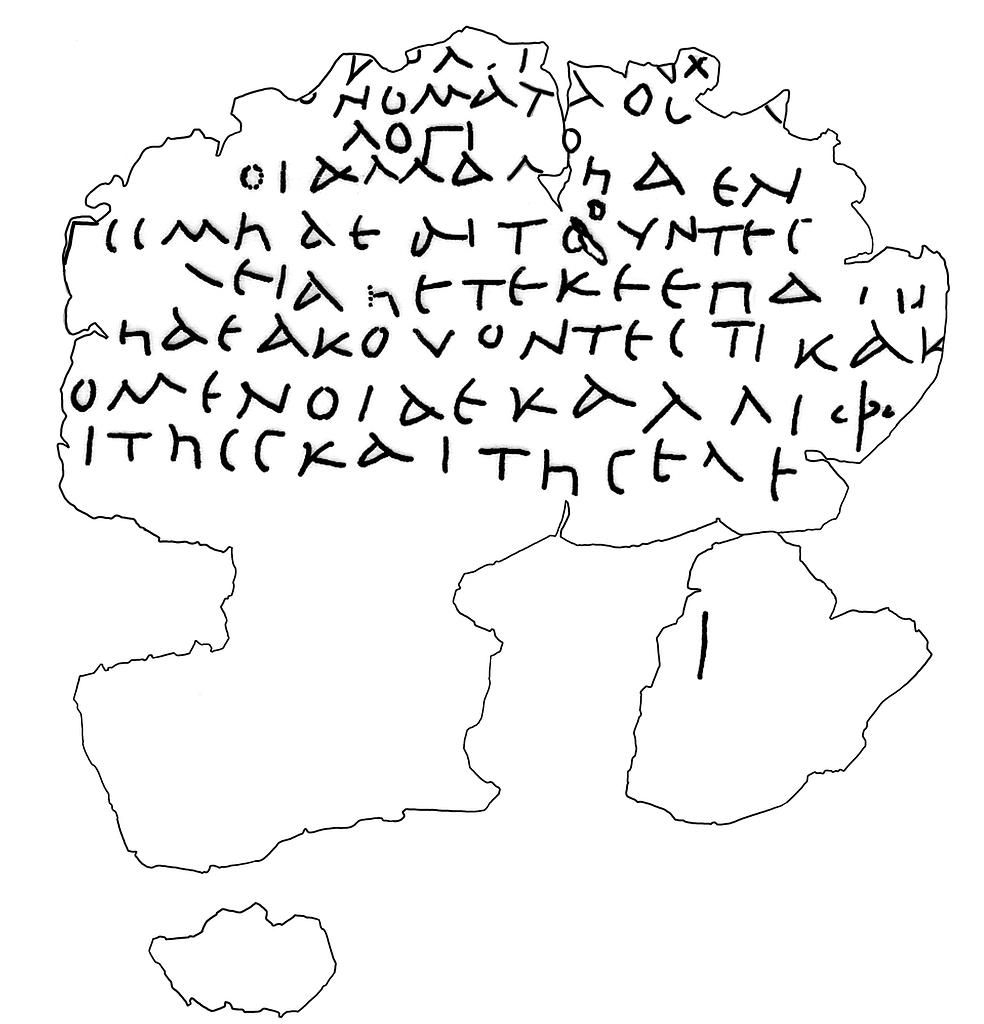 ΝΟΜΑΤ ΛΟΥ
ΛΟΓΙ Ο
ΟΙΑΛΛΑΜΗΔΕΝ
ϹϹΜΗΔΕΑΙΤΟΥΝΤΕϹ
ΕΙΑΗΕΤΕΚΕΕΠΑΙΝ
ΗΔΕΑΚΟΥΟΝΤΕϹΤΙΚΑΚ
ΟΜΕΝΟΙΔΕΚΑΛΛΙΦ
ΙΤΗϹϹΚΑΙΤΗϹΕΛΕ